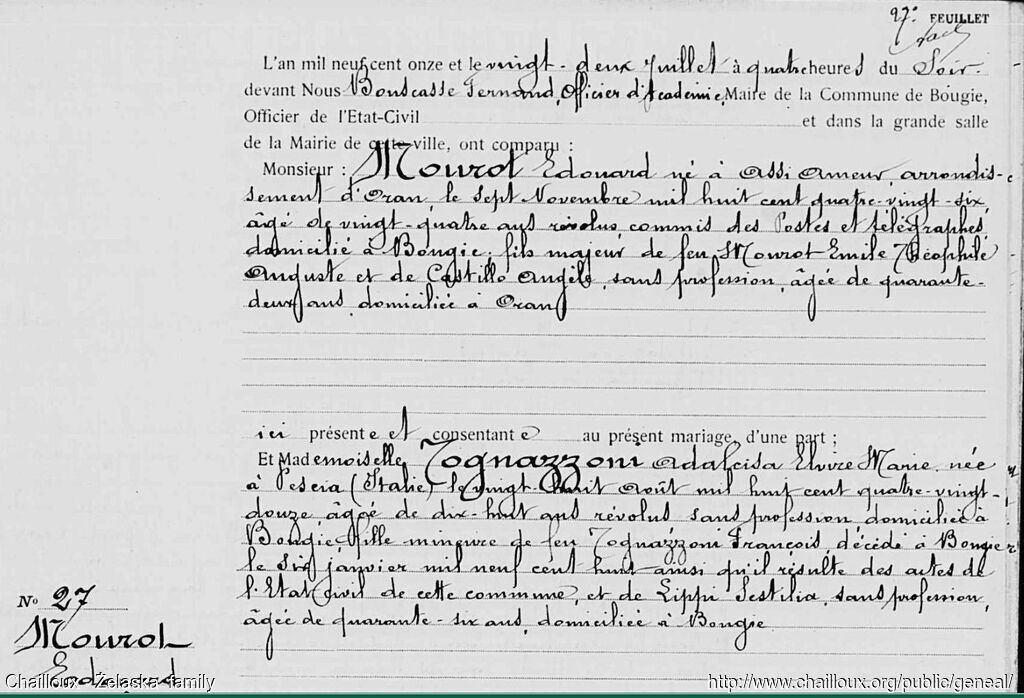 27e FEUILLET
L'an mil neuf cent onze et le vingt-deux Juillet à quatre heures du Soir
devant Nous Bouscasse Fernand, Officier d'Académie, Maire de la Commune de Bougie,
Officier de l'Etat-Civil et dans la grande salle
de la Mairie de cette ville, ont comparu :
Monsieur : Mourot Edouard né à Assi Ameur, arrondis-
sement d'Oran, le sept Novembre mil huit cent quatre-vingt-six,
âgé de vingt-quatre ans révolus, commis des Postes et télégraphes,
domicilié à Bougie, fils majeur de feu Mourot Emile Théophile
Auguste et de Castillo Angèle, sans profession, âgée de quarante-
deux ans, domiciliée à Oran
ici présente et consentante au présent mariage, d'une part ;
Et Mademoiselle Tognazzoni Adalcisa Elvire Marie, née
à Pescia (Italie) le vingt huit Août mil huit cent quatre-vingt-
douze, âgée de dix-huit ans révolus sans profession domiciliée à
Bougie, fille mineure de feu Tognazzoni François, décédé à Bougie
le six janvier mil neuf cent huit ainsi qu'il résulte des actes de
l'Etat civil de cette commune, et de Lippi Sestilia, sans profession,
âgée de quarante-six ans, domiciliée à Bougie
No 27
Mourot
Edouard
Chailloux - Zelaska family
http://www.chailloux.org/public/geneal/